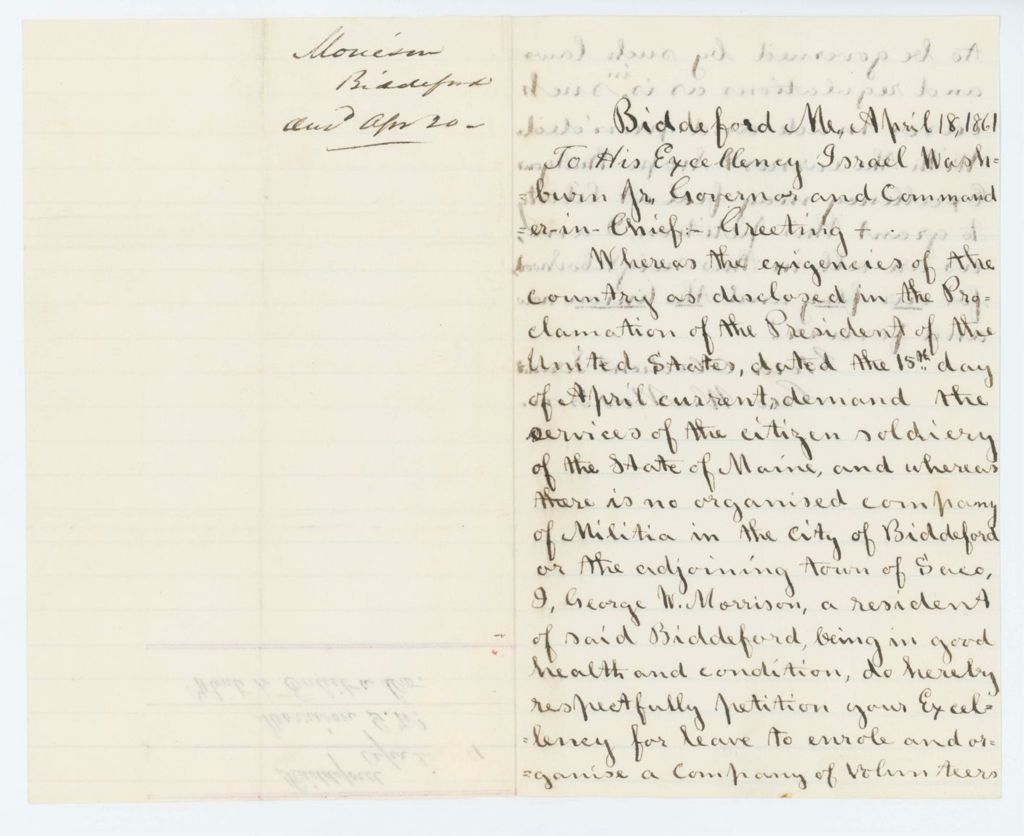 Morrison
Biddeford
Ansd Apr 20 -
Biddeford Me., April 18, 1861
To His Excellency Israel Wash=
=burn Jr., Governor and Command
=er-in-Chief:- Greeting +
Whereas the exigencies of the
country as disclosed in the Pro-
clamation of the President of the
United States, dated the 15th day
of April current, demand the
services of the citizen soldiery
of the State of Maine, and whereas
there is no organised company
of Militia in the city of Biddeford
or the adjoining town of Saco,
I, George W. Morrison, a resident
of said Biddeford, being in good
health and condition, do hereby
respectfully petition your Excel=
=lency for leave to enrole and or=
=ganise a Company of Volunteers